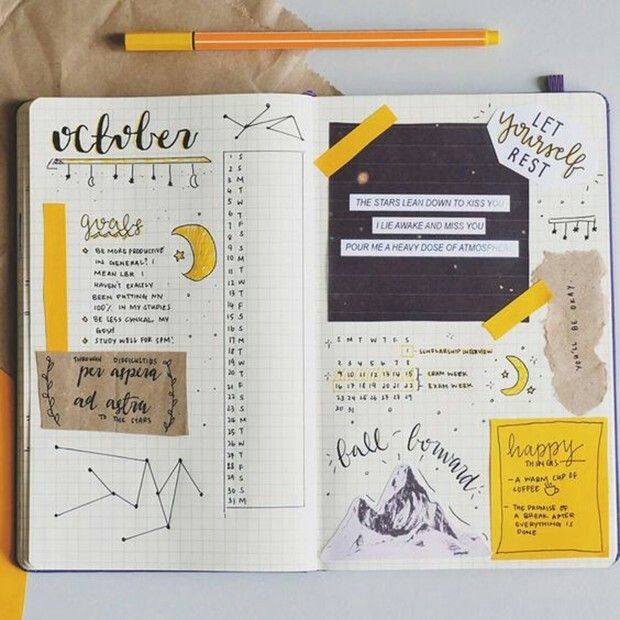 october
goals
BE MORE PRODUCTIVE
IN GENERAL? I
MEAN LBR I
HAVEN'T EXACTLY
BEEN PUTTING MY
100% IN MY STUDIES
BE LESS CYNICAL. MY
GOSH
STUDY WELL FOR SPM!
THROUGH DIFFICULTIES
per aspera
ad astra
TO THE STARS
1 S
2 S
3 M
4 T
5 W
6 T
7 F
8 S
9 S
10 M
11 T
12 W
13 T
14 F
15 S
16 S
17 M
18 T
19 W
20 T
21 F
22 S
23 S
24 M
25 T
26 W
27 T
28 F
29 S
30 S
31 M
THE STARS LEAN DOWN TO KISS YOU
I LIE AWAKE AND MISS YOU
POUR ME A HEAVY DOSE OF ATMOSPHERE
LET
yourself
REST
YOU'LL BE OKAY.
S M T W T F S
1 - SCHOLARSHIP INTERVIEW
2 3 4 5 6 7 8
9 10 11 12 13 14 15 - CRAM WEEK
16 17 18 19 20 21 22 - EXAM WEEK
23 24 25 26 27 28 29
30 31
fall-forward
happy
THINGS
- A WARM CUP OF
COFFEE
- THE PROMISE OF
A BREAK AFTER
EVERYTHING IS
DONE